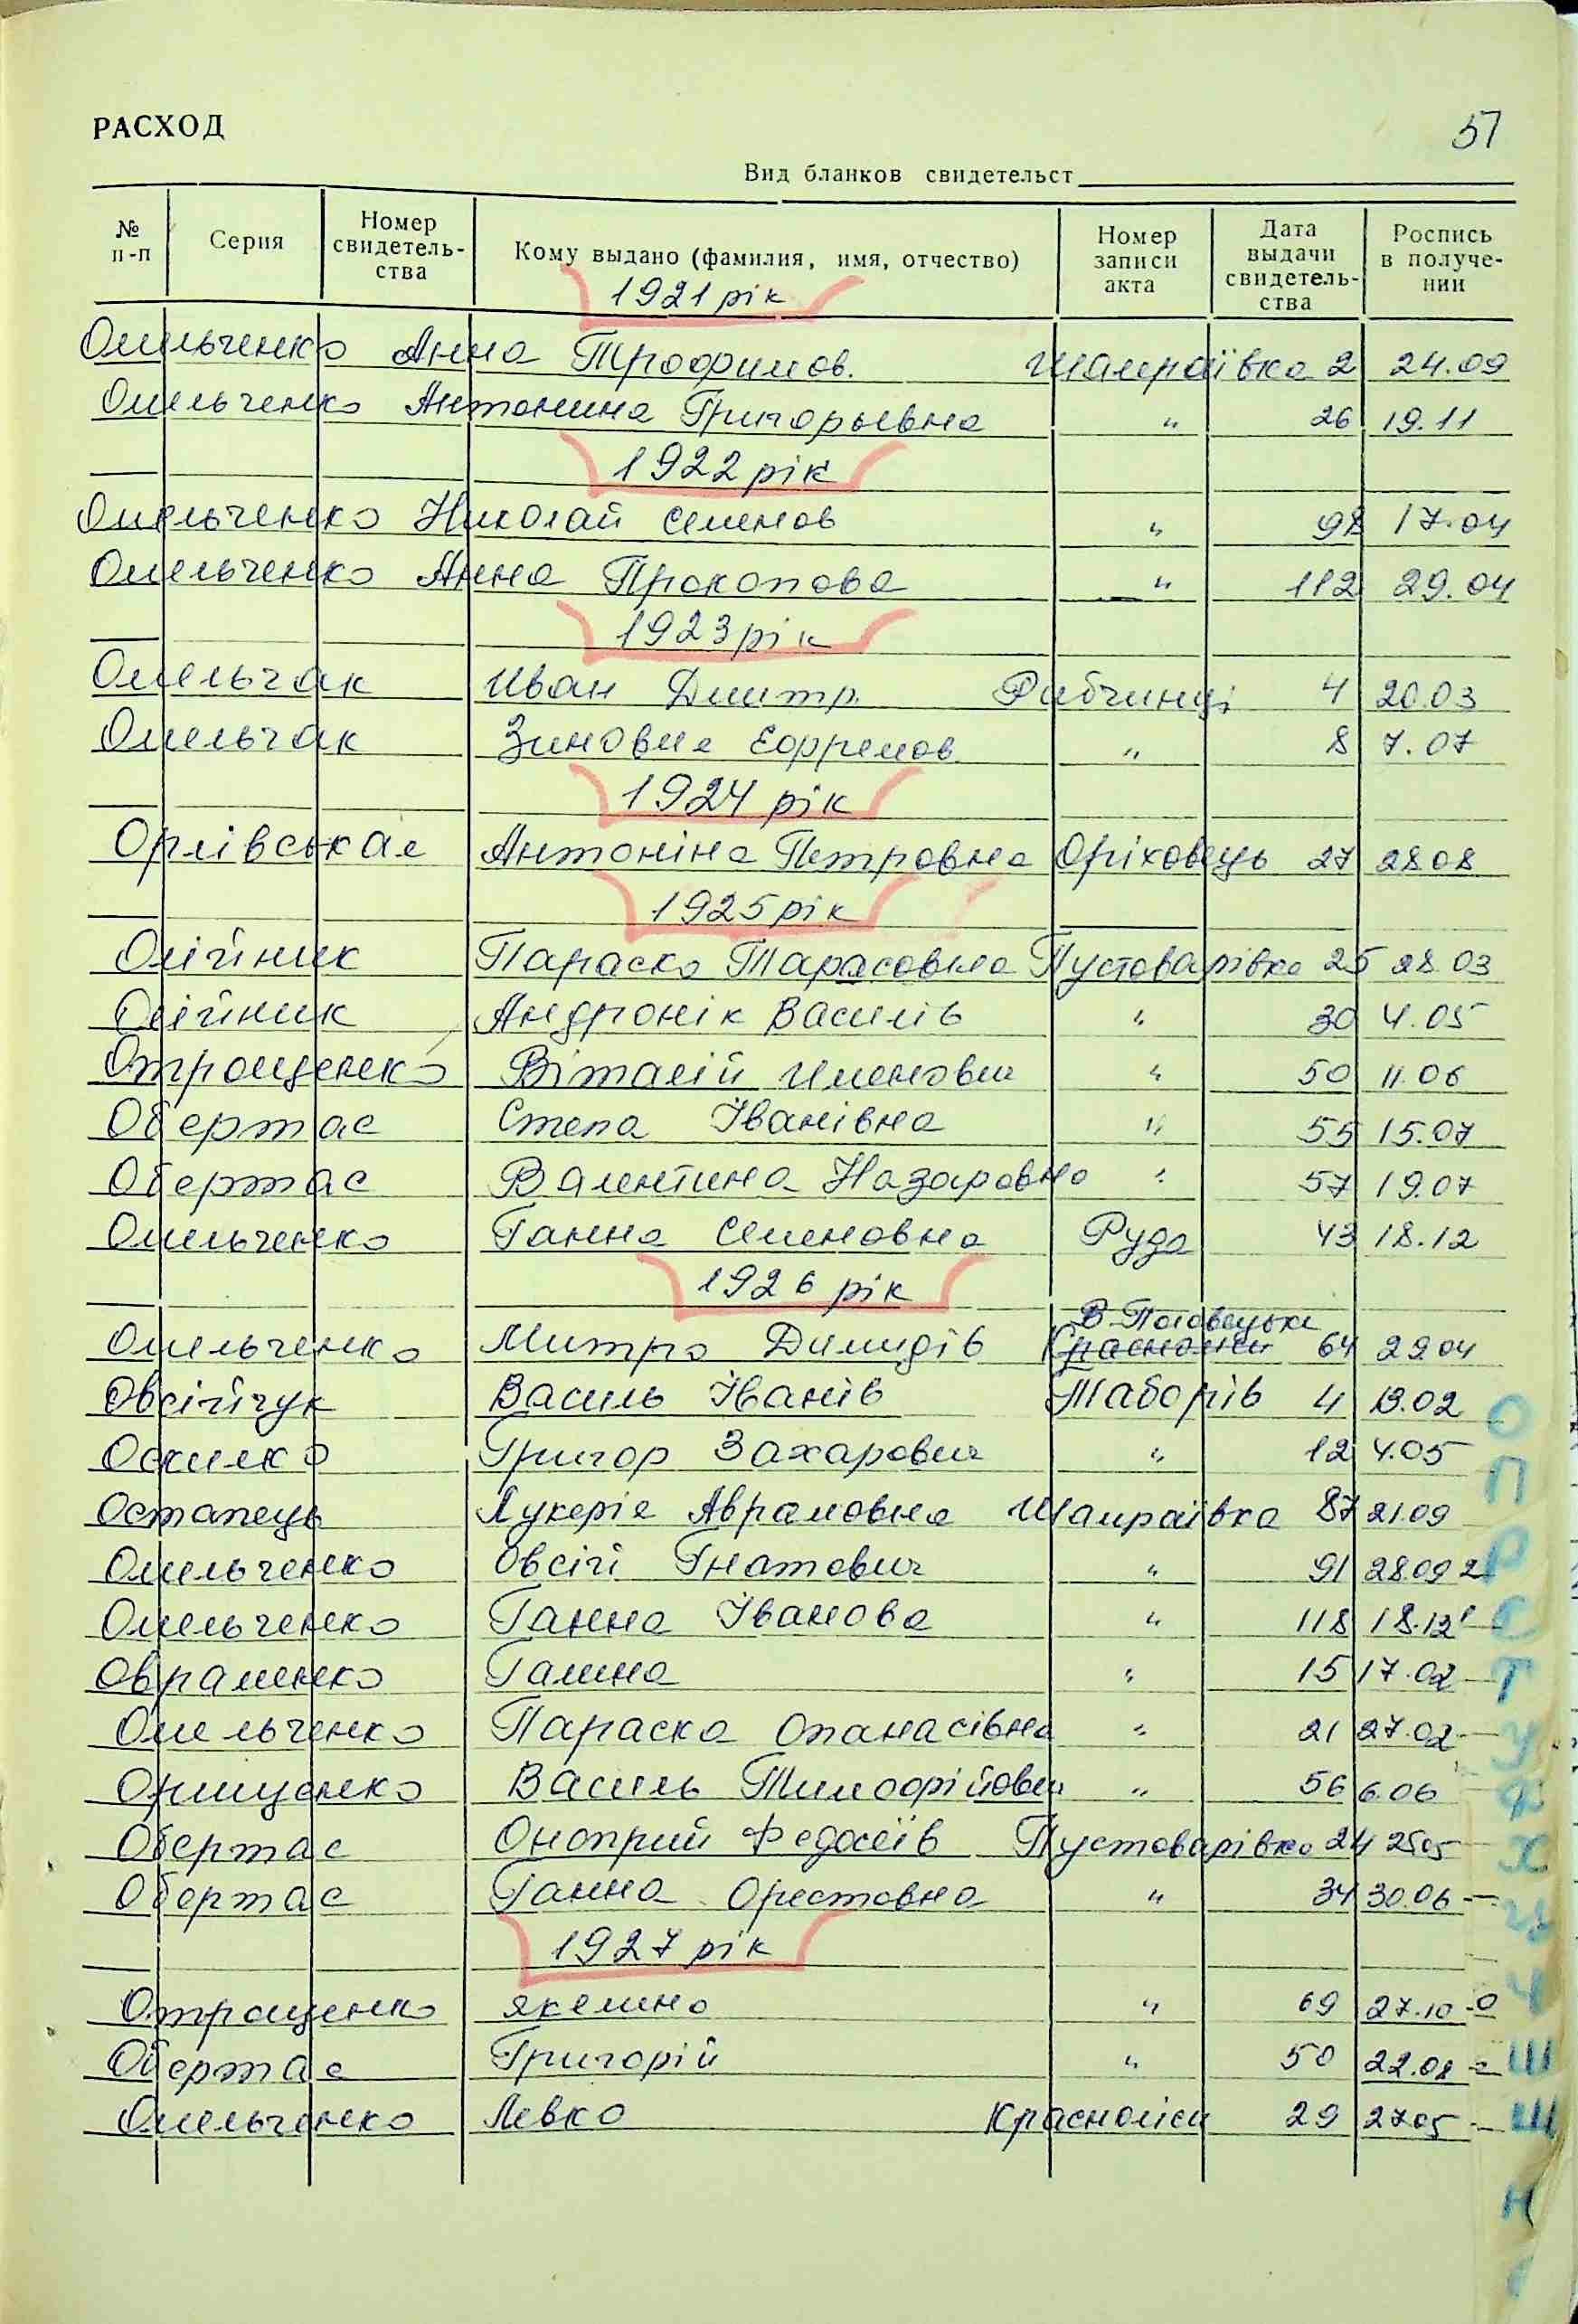 РАСХОД 57
Вид бланков свидетельст
№ п-п Серия Номер свидетель-ства Кому выдано (фамилия, имя, отчество) Номер записи акта Дата выдачи свидетель-ства Роспись в получе-нии
1921 рік
Омельченко Анна Трофимов. Шамраївка 2 24.09
Омельченко Антонина Григорьевна " 26 19.11
1922 рік
Омельченко Николай Семенов " 98 17.04
Омельченко Анна Прокопова " 112 29.04
1923 рік
Омельчак Иван Дмитр. Рибчинці 4 20.03
Омельчак Зиновия Ефремов " 8 7.07
1924 рік
Орлівськая Антоніна Петровна Оріховець 27 28.08
1925 рік
Олійник Параска Тарасовна Пустоварівка 25 28.03
Олійник Андронік Василів " 30 4.05
Отрощенко Віталій " 50 11.06
Обертас Степа Іванівна " 55 15.07
Обертас Валентина Назаровна " 57 19.07
Омельченко Ганна Семеновна Руда 43 18.12
1926 рік
В-Половецьке
Омельченко Митро Демидів Красноліси 64 29.04
Овсійчук Василь Іванів Таборів 4 13.02
Оскилко Григор Захарович " 12 4.05
Остапець Лукерія Аврамовна Шамраївка 87 21.09
Омельченко Овсій Гнатович " 91 28.09
Омельченко Ганна Іванова " 118 18.12
Овраменко Галина " 15 17.02
Омельченко Параска Опанасівна " 21 27.02
Онищенко Василь Тимофійович " 56 6.06
Обертас Оноприй Федосіїв Пустоварівка 24 25.05
Обертас Ганна Орестовна " 34 30.06
1927 рік
Отрощенко Якелина " 69 27.10
Обертас Григорій " 50 22.08
Омельченко Левко Красноліси 29 27.05
О
П
Р
С
Т
У
Ф
Х
Ц
Ч
Ш
Щ